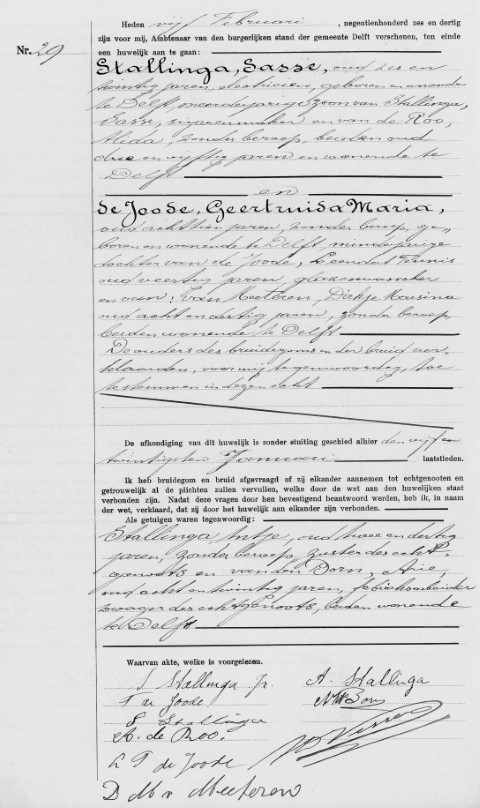 Heden vijf Februari, negentienhonderd zes en dertig
zijn voor mij, Ambtenaar van den burgerlijken stand der gemeente Delft verschenen, ten einde
een huwelijk aan te gaan:
Nr. 29
Stallinga, Sasse, oud zes en
twintig jaren, electricien, geboren en wonende
te Delft, meerderjarige zoon van Stallinga,
Sasse, sigarenmaker en van de Roo,
Alida, zonder beroep, beiden oud
drie en vijftig jaren en wonende te
Delft
en
de Joode, Geertruida Maria,
oud achttien jaren, zonder beroep, ge-
boren en wonende te Delft, minderjarige
dochter van de Joode, Leendert Teunis
oud veertig jaren, glazenwasscher
en van: van Meeteren, Dirkje
oud acht en dertig jaren, zonder beroep,
beiden wonende te Delft
De ouders des bruidegoms en der bruid ver-
klaarden, voor mij tegenwoordig, toe
te stemmen in dezen echt
De afkondiging van dit huwelijk is zonder stuiting geschied alhier den vijf en
twintigsten Januari laatstleden.
Ik heb bruidegom en bruid afgevraagd of zij elkander aannemen tot echtgenooten en
getrouwelijk al de plichten zullen vervullen, welke door de wet aan den huwelijken staat
verbonden zijn. Nadat deze vragen door hen bevestigend beantwoord werden, heb ik, in naam
der wet, verklaard, dat zij door het huwelijk aan elkander zijn verbonden.
Als getuigen waren tegenwoordig:
Stallinga, Antje, oud twee en dertig
jaren, zonder beroep, zuster des echt-
genoots en van den Dorn, Arie,
oud acht en twintig jaren,
zwager des echtgenoots, beiden wonende
te Delft
Waarvan akte, welke is voorgelezen.
S Stallinga Jr. A. Stallinga
de Joode
S Stallinga
A. de Roo.
L T de Joode
D M v Meeteren